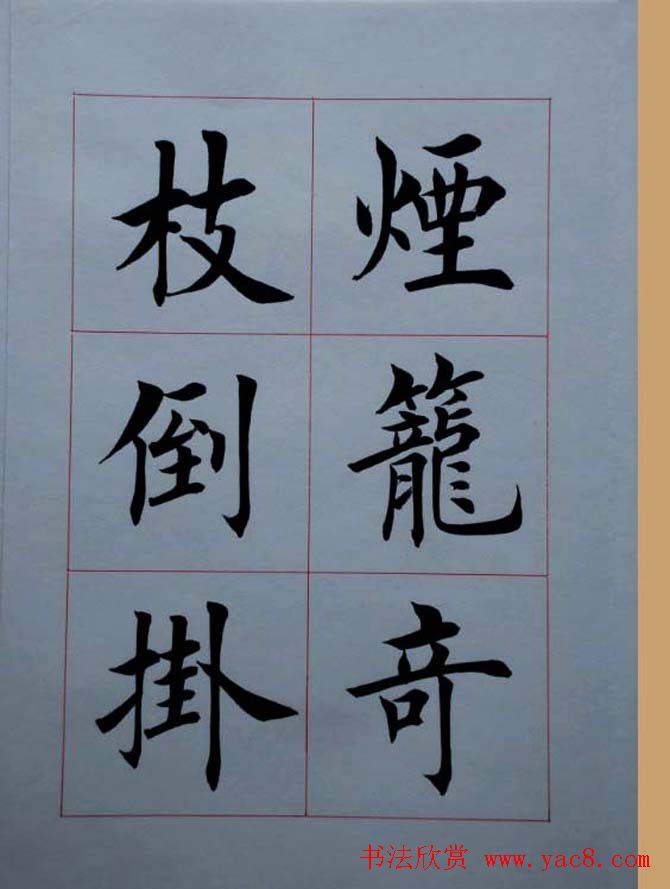 煙籠竒
枝倒掛
书法欣赏 www.yac8.com